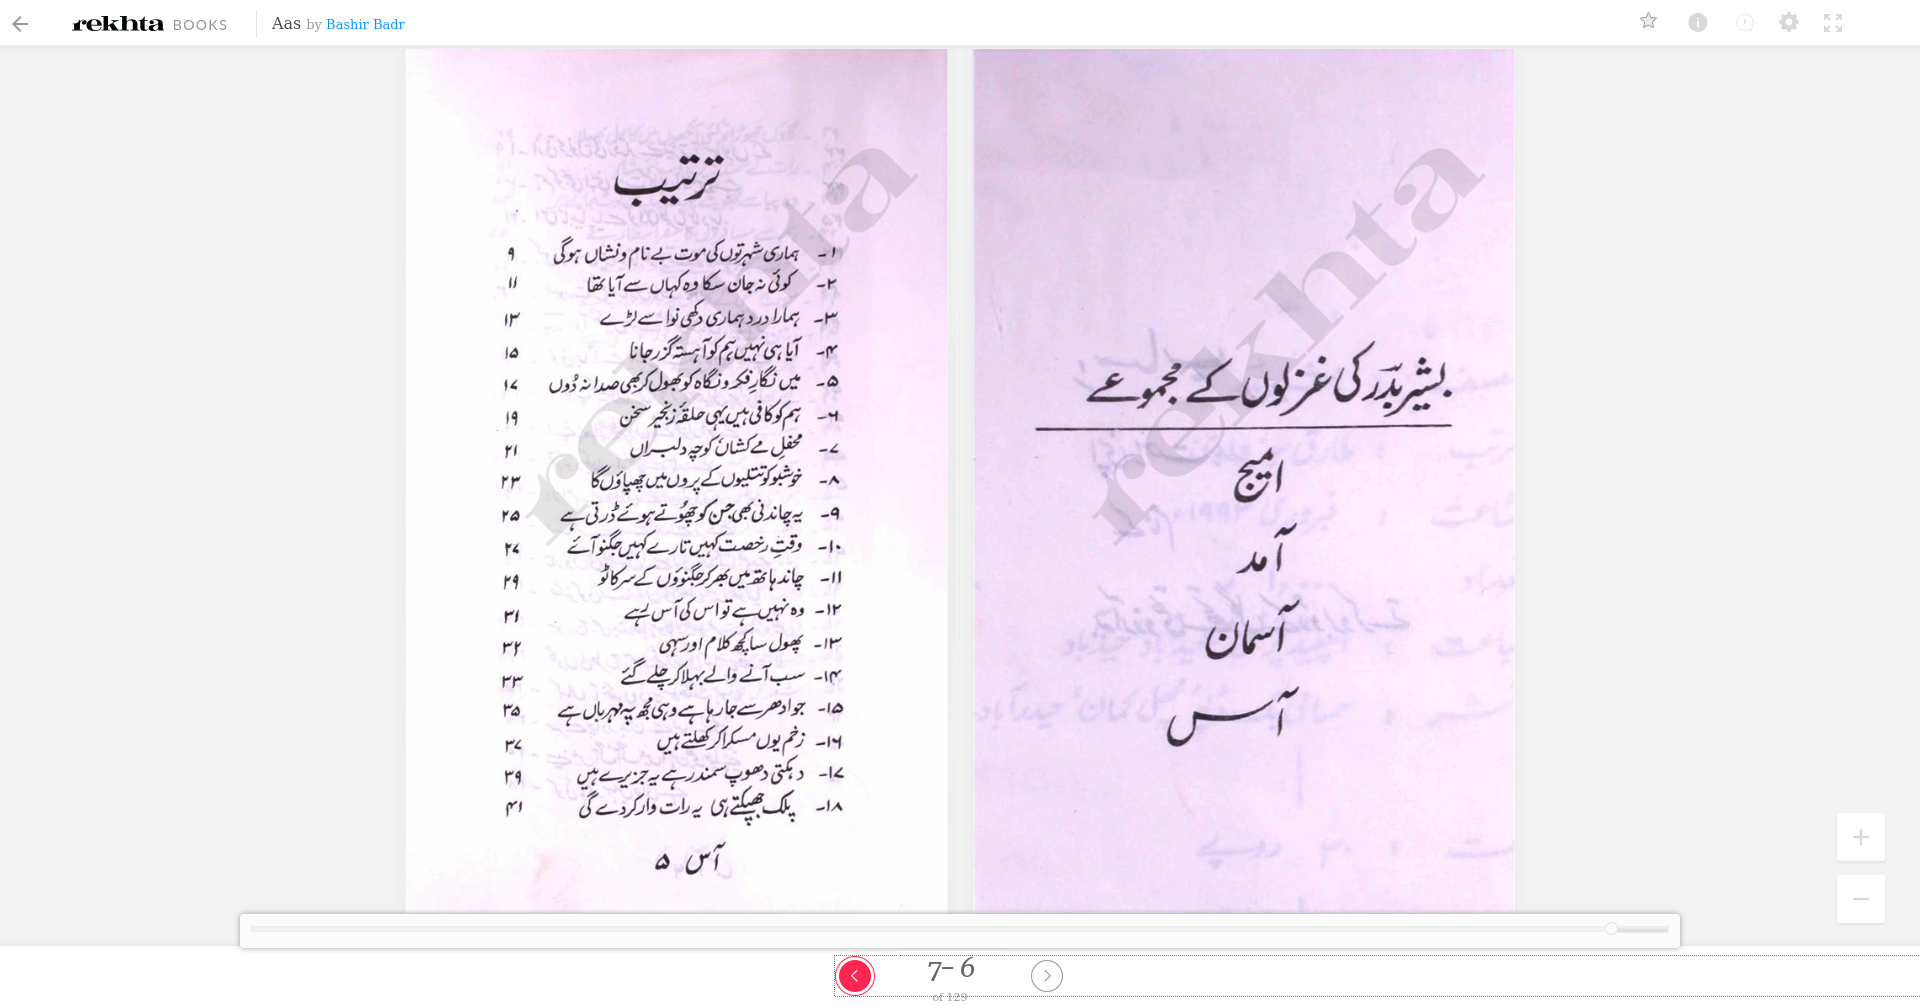 rekhta BOOKS Aas by Bashir Badr
بشیر بدر کی غزلوں کے مجموعے
امیج
آمد
آسمان
آس
ترتیب
۱- ہماری شہرتوں کی موت بے نام و نشاں ہوگی ۹
۲- کوئی نہ جان سکا وہ کہاں سے آیا تھا ۱۱
۳- ہمارا درد ہماری دکھی نوا سے لڑے ۱۳
۴- آیا ہی نہیں ہم کو آہستہ گزر جانا ۱۵
۵- میں نگارِ فکر و نگاہ کو بھول کر بھی صدا نہ دُوں ۱۷
۶- ہم کو کافی ہیں یہی حلقۂ زنجیر سخن ۱۹
۷- محفلِ مے کشاں کوچہ دلبراں ۲۱
۸- خوشبو کو تتلیوں کے پروں میں چھپاؤں گا ۲۳
۹- یہ چاندنی بھی جن کو چھُوتے ہوئے ڈرتی ہے ۲۵
۱۰- وقتِ رخصت کہیں تارے کہیں جگنو آئے ۲۷
۱۱- چاند ہاتھ میں بھر کر جگنوؤں کے سر کاٹو ۲۹
۱۲- وہ نہیں ہے تو اس کی آس رہے ۳۱
۱۳- پھول سا کچھ کلام اور سہی ۳۲
۱۴- سب آنے والے بہلا کر چلے گئے ۳۳
۱۵- جو ادھر سے جا رہا ہے وہی مجھ پہ مہرباں ہے ۳۵
۱۶- زخم یوں مسکرا کر کھلتے ہیں ۳۷
۱۷- دہکتی دھوپ سمندر ہے یہ جزیرے ہیں ۳۹
۱۸- پلک جھپکتے ہی یہ رات وار کر دے گی ۴۱
آس ۵
rekhta
rekhta
7– 6
of 129